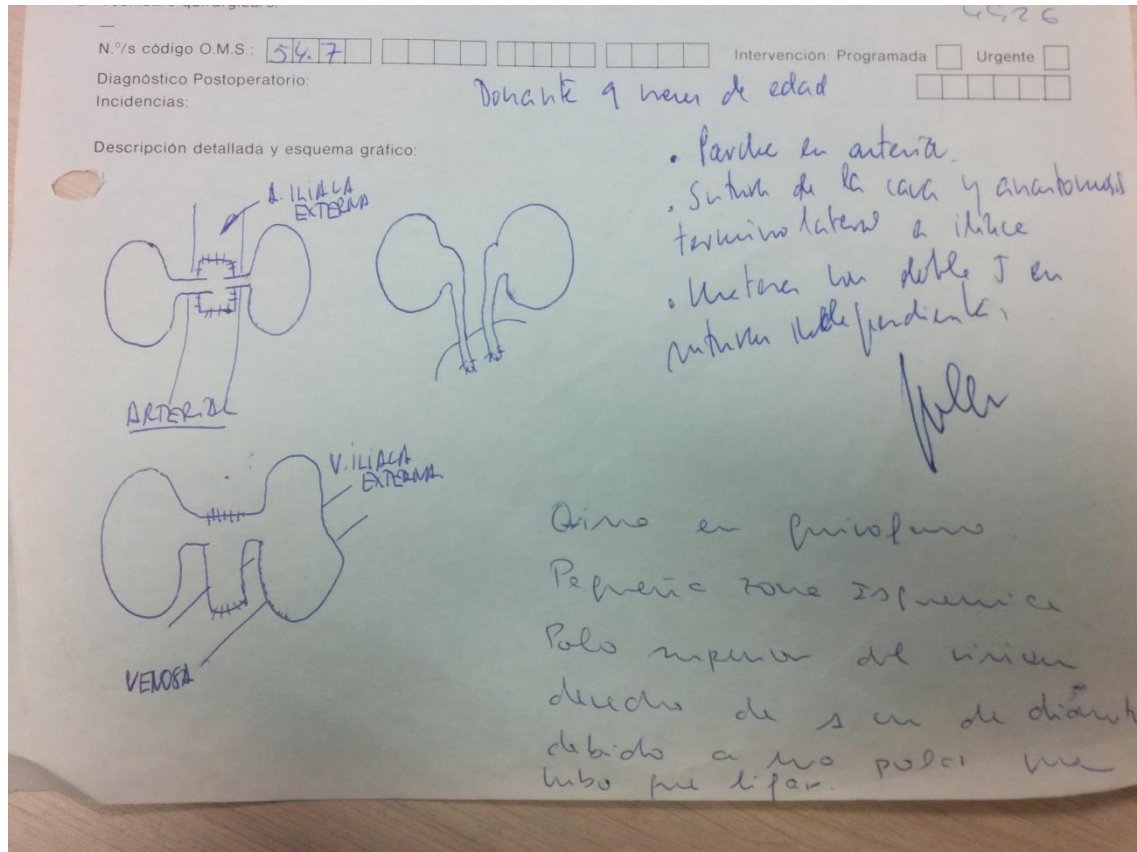 4526
N.º/s código O.M.S.: 54.7
Intervención: Programada Urgente
Diagnóstico Postoperatorio:
Incidencias:
Donante 9 meses de edad
Descripción detallada y esquema gráfico:
A. ILIACA
EXTERNA
ARTERIAL
• Parche en arteria.
• Sutura de la cava y anastomosis
termino lateral a iliaca
• Ureteres con doble J en
suturas independientes.
V. ILIACA
EXTERNA
VENOSA
en quirofano
Pequeña zona Isquemica
Polo superior del riñon
derecho de 1 cm de
debido a polar
hubo que ligar.